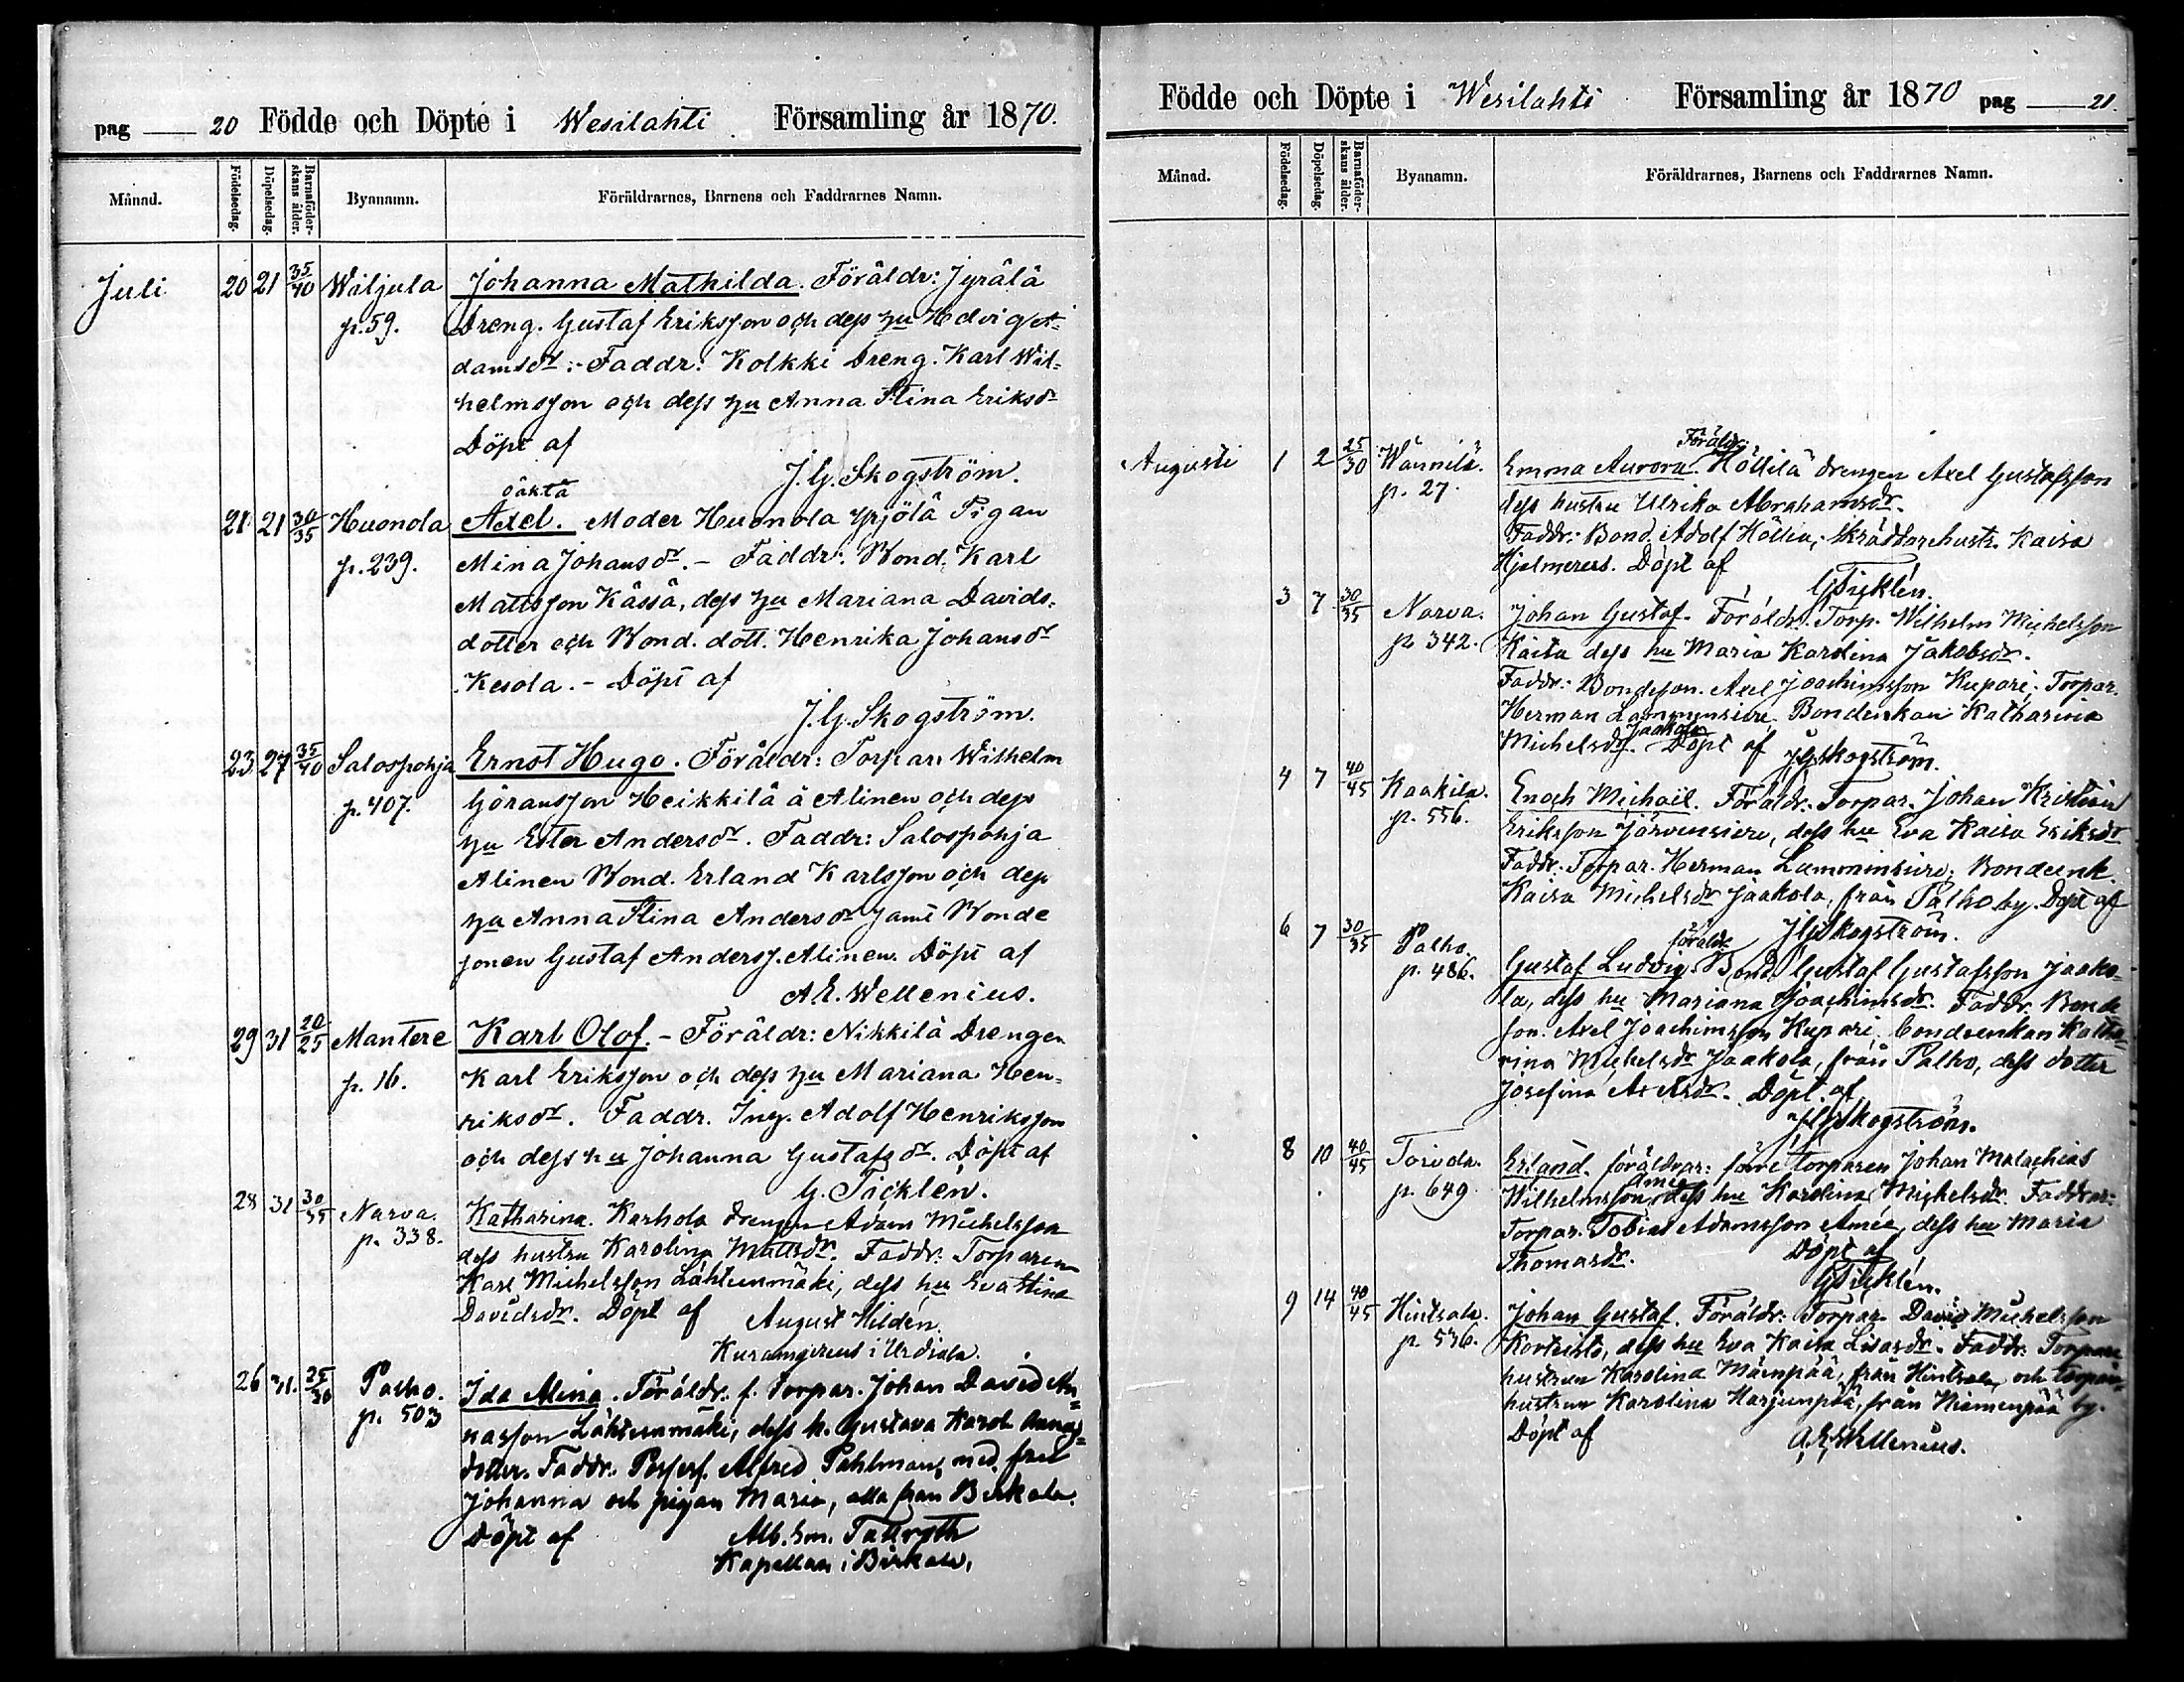 pag 20 Födde och Döpte i Wesilahti Församling år 1870.
Månad. Födelsedag. Döpelsedag. Barnaföder-skans ålder. Byanamn. Föräldrarnes, Barnens och Faddrarnes Namn.
Juli 20 21 35/40 Wäljula Johanna Mathilda. Föräldr: Jyrälä
p. 59. Dreng. Gustaf Eriksson och dess hu Hedvig A-
damsdr:- Faddr: Kolkki Dreng. Karl Wil=
helmsson och dess hu Anna Stina Eriksdr
Döpt af
J. G. Skogström.
oäkta
21 21 30/35 Huonola Axel. Moder Huonola Yrjölä Pigan
p. 239. Mina Johansdr. - Faddr: Bond. Karl
Mattsson Kässä, dess hu Mariana Davids=
dotter och Bond. dott. Henrika Johansdr
Kesola. - Döpt af
J. G. Skogström.
23 27 35/40 Salospohja Ernst Hugo. Föräldr: Torparn Wilhelm
p. 407. Göransson Heikkilä å Alinen och dess
hu Ester Andersdr. Faddr: Salospohja
Alinen Bond. Erland Karlsson och dess
hu Anna Stina Andersdr samt Bonde
sonen Gustaf Anderss. Alinen. Döpt af
A. E. Wellenius.
29 31 20/25 Mantere Karl Olof. - Föräldr: Nikkilä Drengen
p. 16. Karl Eriksson och dess hu Mariana Hen=
riksdr. Faddr. Ing. Adolf Henriksson
och dess hu Johanna Gustafsdr. Döpt af
G. Ticklén.
28 31 30/35 Narva. Katharina. Karhola drengen Adam Michelsson
p. 338. dess hustru Karolina Mattsdr. Faddr: Torparen
Karl Michelsson Lähteenmäki, dess hu Eva Stina
Davidsdr. Döpt af August Hildén.
i Urdiala.
26 31. 25/30 Palho. Ida Mina. Föräldr: f. Torpar. Johan David An=
p. 503 nasson Lähteenmäki, dess h. Gustava Karol. Annas=
dotter. Faddr: Alfred Pahlman, med fru
Johanna och pigan Maria, alla från Birkala.
Döpt af Alb. Em. Tallroth
Kapellan i Birkala.
Födde och Döpte i Wesilahti Församling år 1870 pag 21.
Månad. Födelsedag. Döpelsedag. Barnaföder-skans ålder. Byanamn. Föräldrarnes, Barnens och Faddrarnes Namn.
Föräldr:
Augusti 1 2 25/30 Wännilä. Emma Aurora. Höllilä drengen Axel Gustafsson
p. 27. dess hustru Ulrika Abrahamsdr.
Faddr: Bond. Adolf Höllilä, Skräddarehustr. Kaisa
Döpt af
G Ticklén.
3 7 30/35 Narva. Johan Gustaf. Föräldr: Torp. Wilhelm Michelsson
p. 342. dess hu Maria Karolina Jakobsdr.
Faddr: Bondeson. Axel Joachimsson Kupari; Torpar.
Herman Lamminsivu. Bondenkan Katharina
Jaakola
Michelsdr. Döpt af J G Skogström.
4 7 40/45 Kaakila. Enoch Michail. Föräldr: Torpar. Johan Kristian
p. 556. Eriksson Järvensivu, dess hu Eva Kaisa Eriksdr
Faddr: Torpar. Herman Lamminsivu; Bondeenk.
Kaisa Michelsdr Jaakola, från Palho by. Döpt af
J G Skogström.
föräldr:
6 7 30/35 Palho. Gustaf Ludvig. Bond. Gustaf Gustafsson Jaako=
p. 486. la, dess hu Mariana Joachimsdr. Faddr. Bonde
son. Axel Joachimsson Kupari, bondeenkan Katha=
rina Michelsdr Jaakola, från Palho, dess dotter
Josefina Axelsdr. Döpt af
J G Skogström.
8 10 40/45 Toivola. Erland. föräldrar: förre torparen Johan Malachias
Amée
p. 649 Wilhelmsson, dess hu Karolina Michelsdr. Faddrar:
Torpar. Tobias Adamsson Amée, dess hu Maria
Thomasdr. Döpt af
G Ticklén.
9 14 40/45 Hintsala. Johan Gustaf. Föräldr: Torpar. David Michelsson
p. 536. dess hu Eva Kaisa Lisasdr. Faddr: Torpare
hustrun Karolina Mäenpää, från Hintsala, och torpar=
hustrun Karolina Harjunpää, från Niemenpää by.
Döpt af A. E. Wellenius.